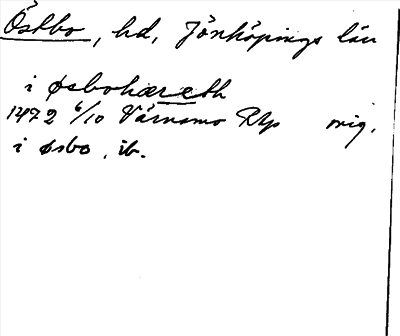 Östbo, hd, Jönköpings län
i øsbohæreth
1472 6/10 Värnamo RAp orig.
i øsbo, ib.